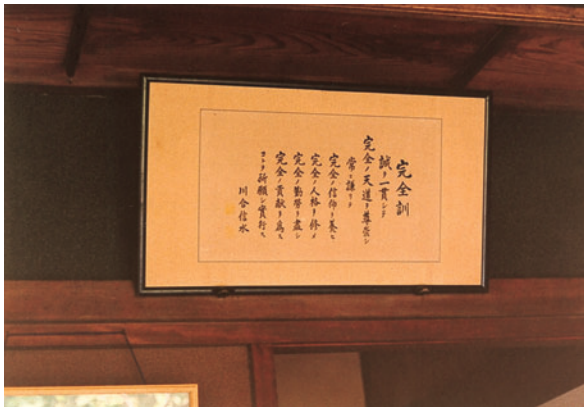 完全訓
誠ヲ一貫シテ
完全ノ天道ヲ尊崇シ
常ニ謙リテ
完全ノ信仰ヲ養ヒ
完全ノ人格ヲ修メ
完全ノ勤労ヲ盡シ
完全ノ貢献ヲ為ス
コトヲ祈願シ實行ス
川合信水